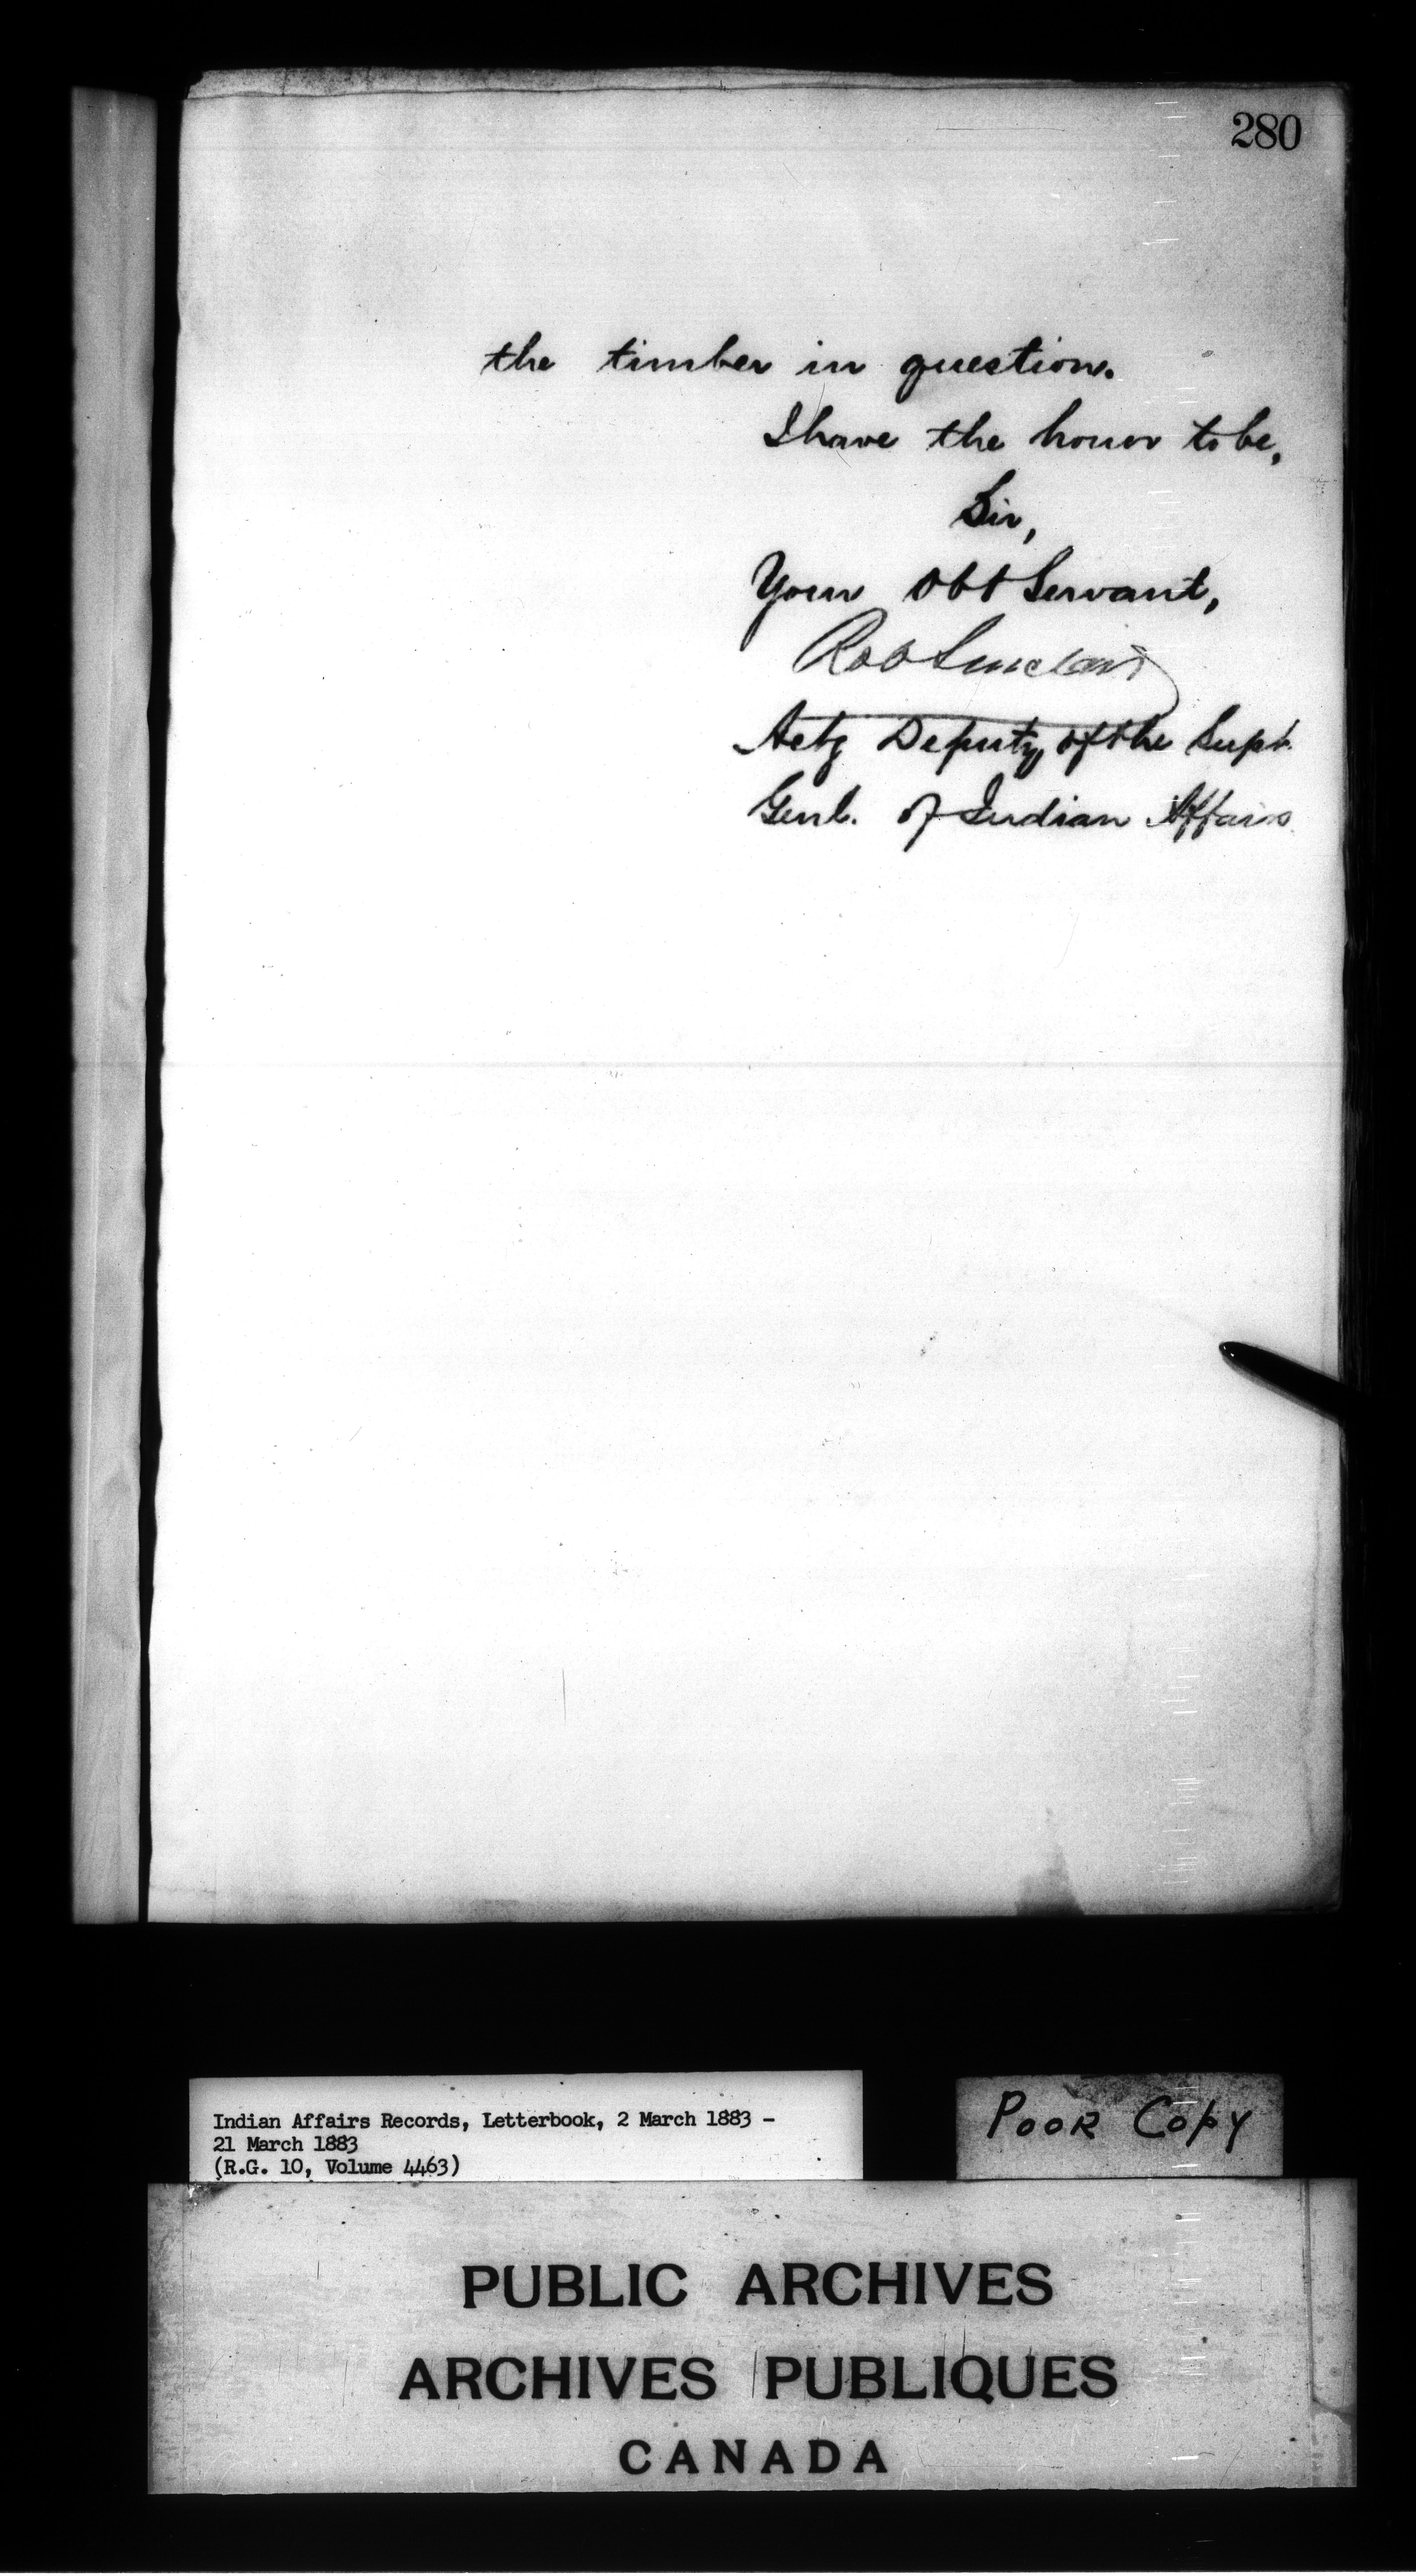 280
the timber in question.
I have the honor to be,
Sir,
Your Obt Servant,
Rob Sinclair
Actg Deputy of the Supt.
Genl. of Indian Affairs
Indian Affairs Records, Letterbook, 2 March 1883 –
21 March 1883
(R.G. 10, Volume 4463)
POOR COPY
PUBLIC ARCHIVES
ARCHIVES PUBLIQUES
CANADA